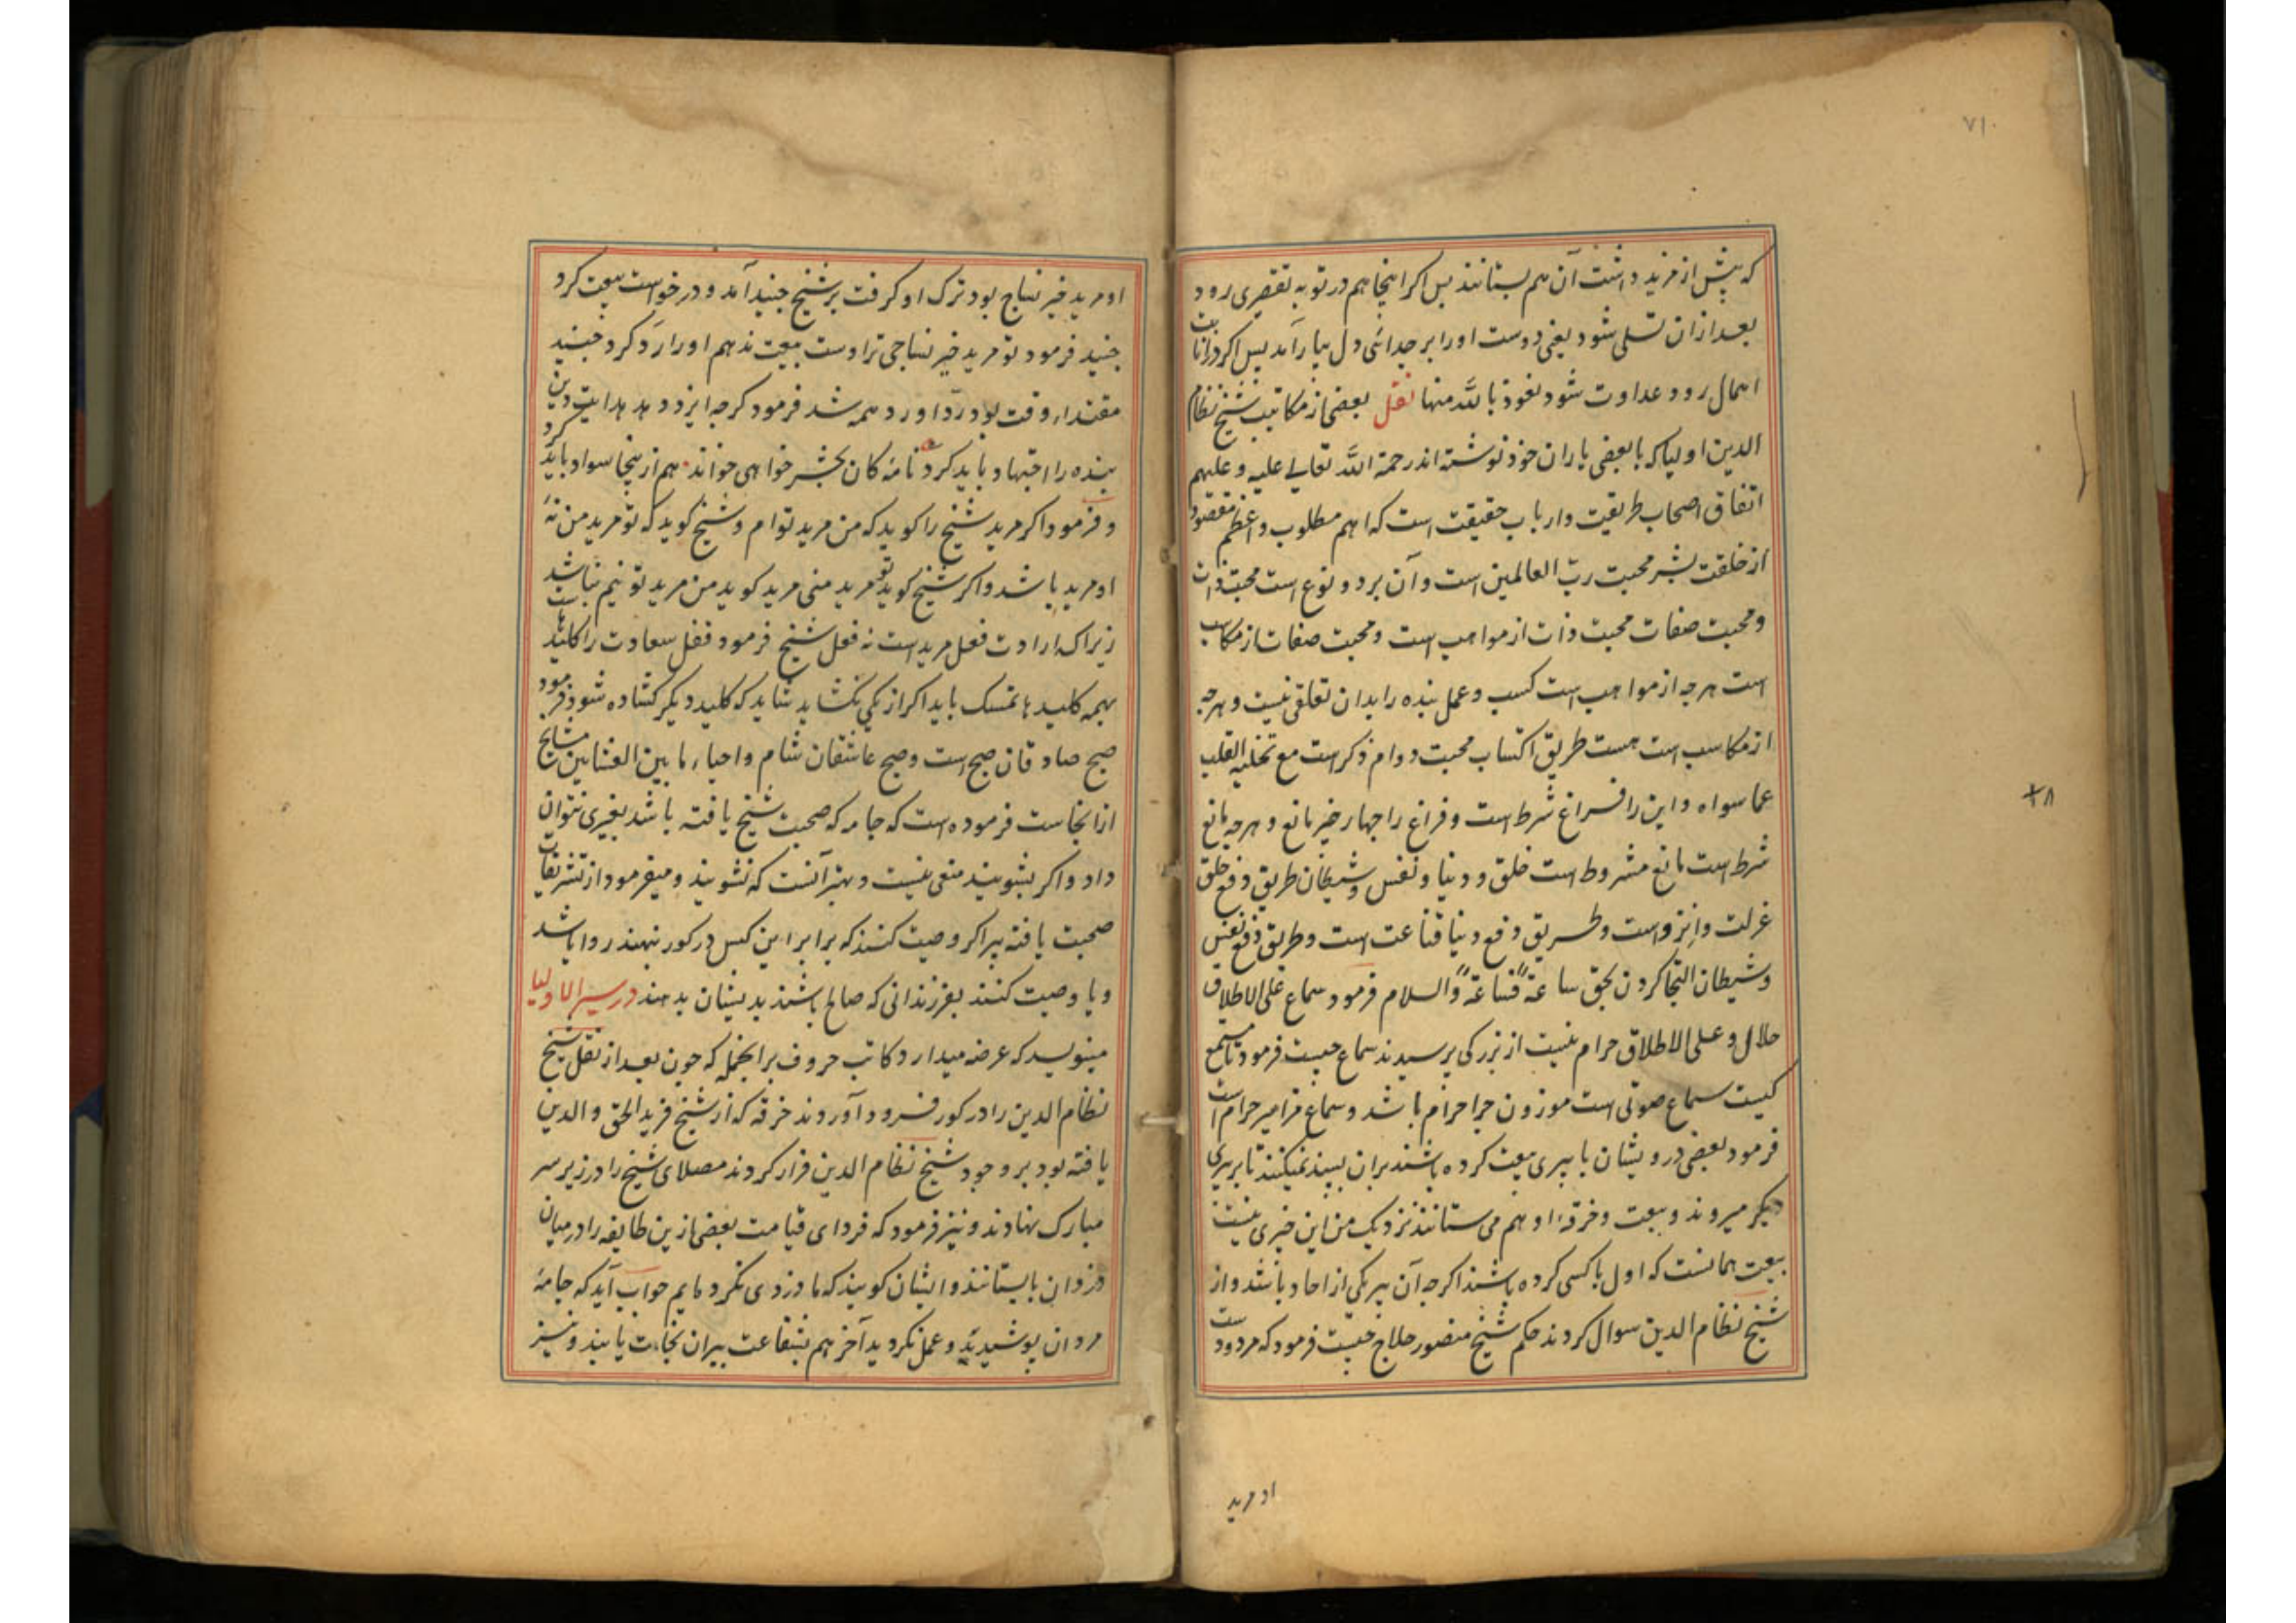 ۷۱۰
که پیش از مزید داشت آن هم بستانند پس اکر اینجا هم در توبه تقصیری رود
بعد ازان تسلی شود یعنی دوست او را بر جدائی دل بیارآمد پس اکر در انابت
اهمال رود عداوت شود نعوذ بالله منها نقل بعضی از مکاتیب شیخ نظام
الدین اولیا که با بعضی یاران خود نوشته اند رحمة الله تعالی علیه و علیهم
اتفاق اصحاب طریقت و ارباب حقیقت است که اهم مطلوب و اعظم مقصود
از خلقت بشر محبت رب العالمین است و آن بر دو نوع است محبت ذات
و محبت صفات محبت ذات از مواهب است و محبت صفات از مکاسب
است هرچه از مواهب است کسب و عمل بنده را بدان تعلقی نیست و هرچه
از مکاسب است هست طریق اکتساب محبت دوام ذکر است مع تخلیه القلب
عما سواه و این را فراغ شرط است و فراغ را چهار چیز مانع و هرچه مانع
شرط است مانع مشروط است خلق و دنیا و نفس و شیطان طریق دفع خلق
عزلت و انزواست و طریق دفع دنیا قناعت است و طریق دفع نفس
و شیطان التجا کردن بحق ساعة فساعة والسلام فرمود سماع علی الاطلاق
حلال و علی الاطلاق حرام نیست از بزرکی پرسیدند سماع چیست فرمود تا مستمع
کیست سماع صوتی است موزون چرا حرام باشد و سماع مزامیر حرام است
فرمود بعضی درویشان با پیری بیعت کرده باشند بران بسند نمیکنند تا بر پیری
دیکر میروند و بیعت و خرقه او هم می ستانند نزدیک من این چیزی نیست
بیعت همانست که اول با کسی کرده باشند اکرچه آن پیر یکی از احاد باشد و از
شیخ نظام الدین سوال کردند حکم شیخ منصور حلاج چیست فرمود که مردودست
او مرید
۲۸
او مرید خیر نساج بود ترک او کرفت بر شیخ جنید آمد و درخواست بیعت کرد
جنید فرمود تو مرید خیر نساجی ترا دست بیعت ندهم او را رد کرد جنید
مقتداء وقت بود رد او رد همه شد فرمود کرچه ایزد دهد هدایت دین
بنده را اجتهاد باید کرد نامه کان بحشر خواهی خواند هم ازینجا سواد باید کرد
و فرمود اکر مرید شیخ را کوید که من مرید توام و شیخ کوید که تو مرید من نۀ
او مرید باشد و اکر شیخ کوید تو مرید منی مرید کوید من مرید تو نیم نباشد
زیراکه ارادت فعل مرید است نه فعل شیخ فرمود قفل سعادت را کلیدهاست
بهمه کلیدها تمسک باید اکر از یکی نکشاید شاید که کلید دیکر کشاده شود فرمود
صبح صادقان صبح است و صبح عاشقان شام و احیاء ما بین العشائین مشایخ
ازانجاست فرموده است که جامه که صحبت شیخ یافته باشد بغیری نتوان
داد و اکر بشویند منعی نیست و بهتر آنست که نشویند و میفرمود از تشریفات
صحبت یافته پیر اکر وصیت کنند که برابر این کس در کور نهند روا باشد
و یا وصیت کنند بفرزندانی که صالح باشند بدیشان بدهند در سیر الاولیا
مینویسد که عرضه میدارد کاتب حروف برانجمله که چون بعد از نقل شیخ
نظام الدین را در کور فرود آوردند خرقه که از شیخ فرید الحق والدین
یافته بود بر وجود شیخ نظام الدین فراز کردند مصلای شیخ را در زیر سر
مبارک نهادند و نیز فرمود که فردای قیامت بعضی ازین طایفه را در میان
دزدان بایستانند و ایشان کویند که ما دزدی نکرده ایم جواب آید که جامۀ
مردان پوشیدید و عمل نکردید آخر هم بشفاعت پیران نجات یابند و نیز